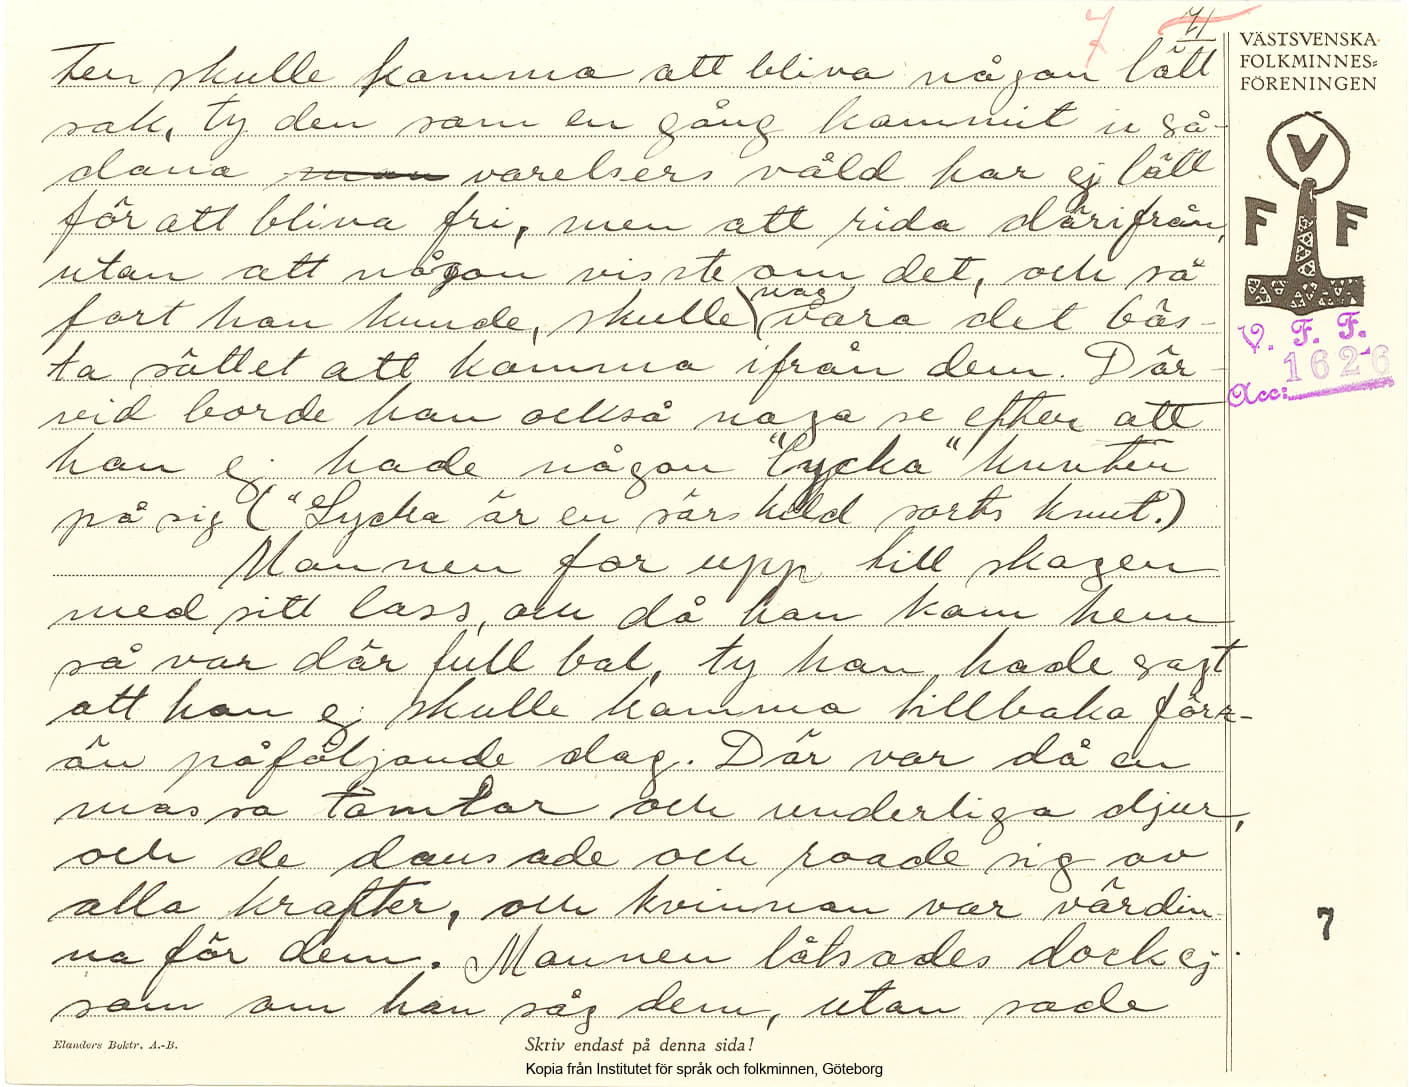 7 71
ten skulle komma att bliva någon lätt
sak, ty den som en gång kommit i så-
dana man varelsers våld har ej lätt
för att bliva fri, men att rida därifrån,
utan att någon visste om det, och så
fort han kunde, skulle nog vara det bäs-
ta sättet att komma ifrån dem. Där-
vid borde han också noga se efter att
han ej hade någon "lycka" knuten
på sig ("Lycka är en särskild sorts knut.)
Mannen for upp till skogen
med sitt lass, och då han kom hem
så var där full bal, ty han hade sagt
att han ej skulle komma tillbaka förr-
än påföljande dag. Där var då en
massa tomtar och underliga djur,
och de dansade och roade sig av
alla krafter, och kvinnan var värdin-
na för dem. Mannen låtsades dock ej
som om han såg dem, utan sade
VÄSTSVENSKA
FOLKMINNES=
FÖRENINGEN
V
F F
V. F. F.
1626
Acc:
7
Elanders Boktr. A.-B.
Skriv endast på denna sida!
Kopia från Institutet för språk och folkminnen, Göteborg